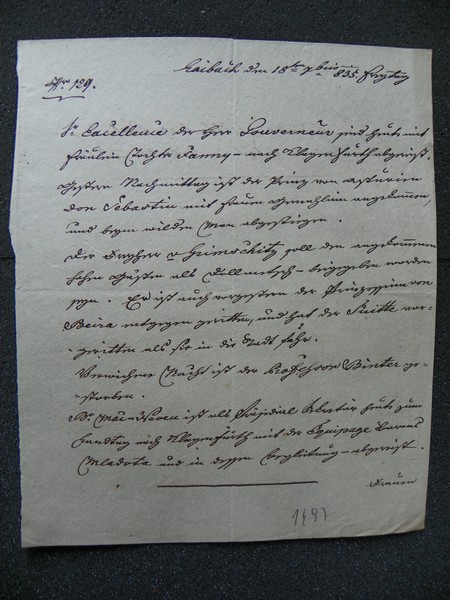 Laibach den 18ten 7bris 835. Freytag
Nr. 129.
Sr. Excellence der Herr Gouverneur sind heute mit
Fräulein Tochter Fanny – nach Klagenfurth abgereist.
Gestern Nachmittag ist der Prinz von Asturien
Don Sebastin mit seiner Gemahlinn angekommen,
und beym wilden Man abgestiegen.
Der Freyherr v Grimschitz soll den angekommenen
hohen Gästen als Dollmetsch – beigegeben worden
seyn. Er ist auch vorgestern der Prinzessinn von
Beira entgegen geritten, und hat der Suitte vor-
geritten als sie in die Stadt fuhr.
Verwichene Nacht ist der Professor Binter ge-
storben.
Br. Mac-Neven ist als Präsidial Secretär heute zum
Landtag nach Klagenfurth mit der Equipage Baron
Mladota und in dessen Begleitung – abgereist.
1497